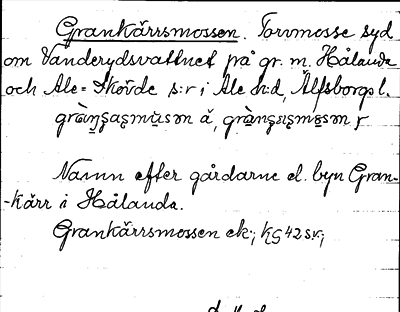 Grankärrsmossen. Torvmosse syd
om Vanderydsvattnet på gr. m. Hålanda
och Ale-Skövde s:r i Ale h:d, Älfsborgs l.
Namn efter gårdarne el. byn Gran-
-kärr i Hålanda.
Grankärrsmossen ek; KG 42 s.v.;